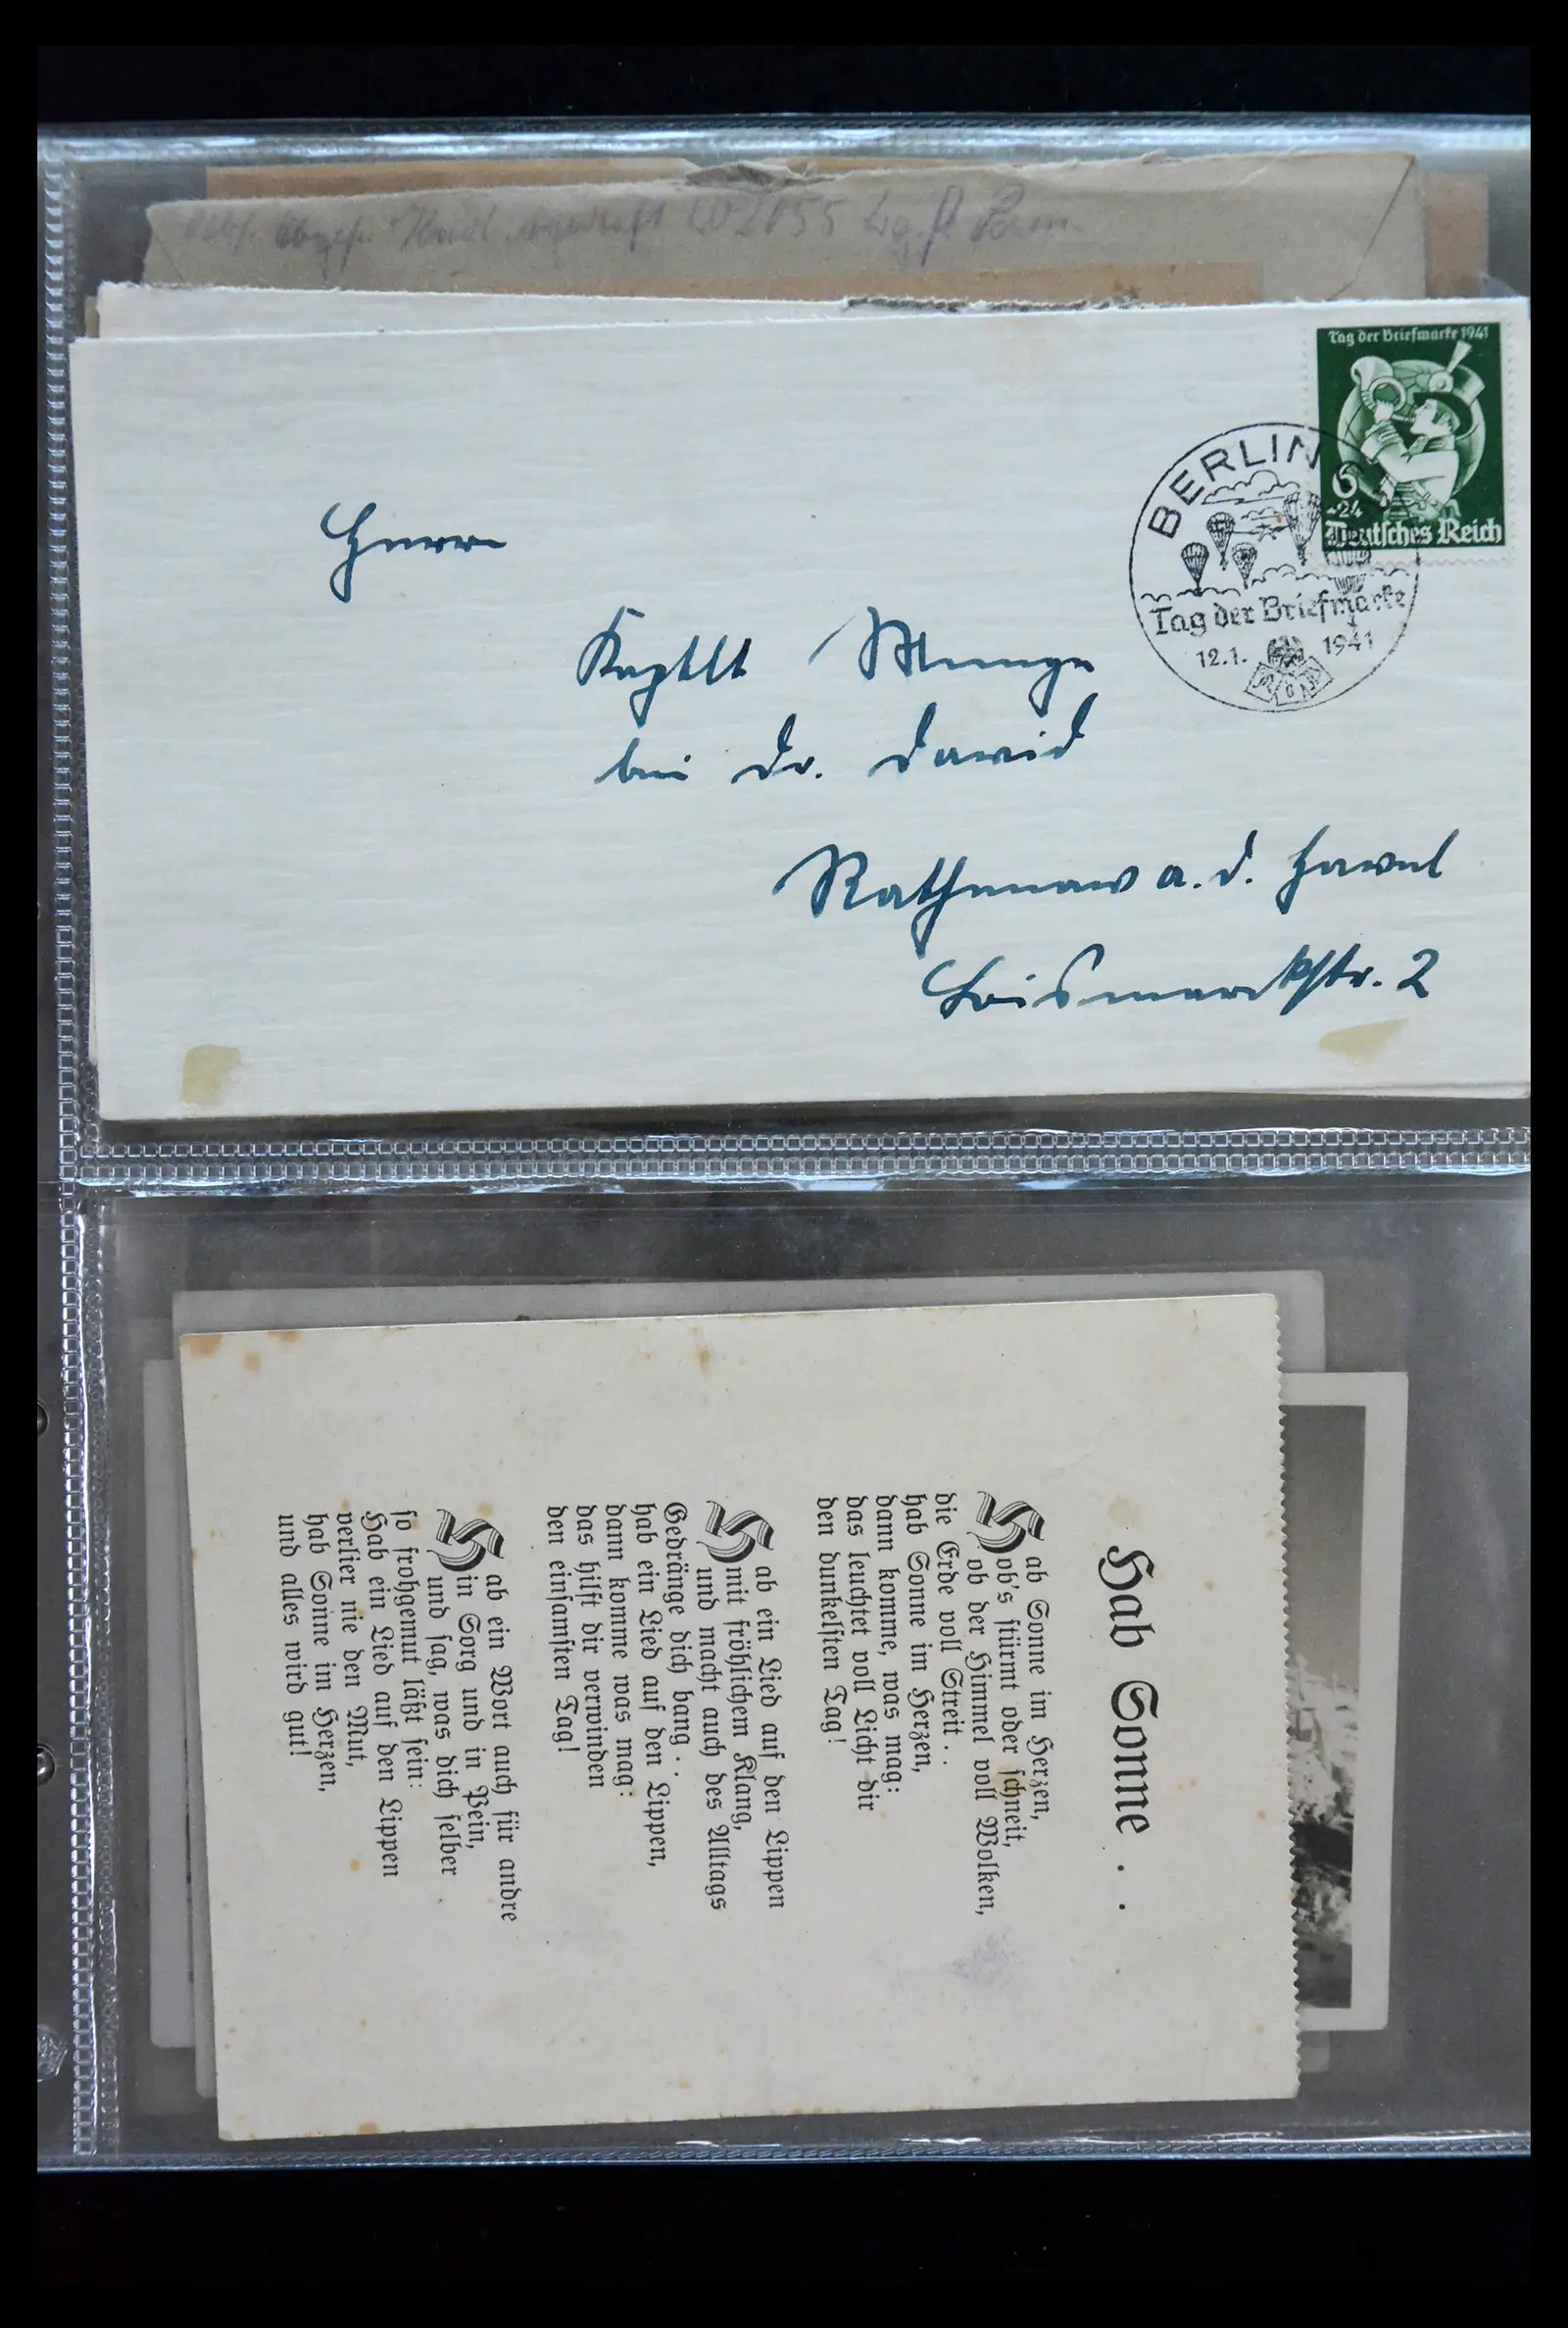 LW 2055
Tag der Briefmarke 1941
6
+24
Deutsches Reich
BERLIN
Tag der Briefmarke
12.1. 1941
Herrn
Kaptlt Menge
bei Dr. David
Rathenow a. d. Havel
Bismarckstr. 2
Hab Sonne . .
Hab Sonne im Herzen,
ob's stürmt oder schneit,
ob der Himmel voll Wolken,
die Erde voll Streit . .
hab Sonne im Herzen,
dann komme, was mag:
das leuchtet voll Licht dir
den dunkelsten Tag!
Hab ein Lied auf den Lippen
mit fröhlichem Klang,
und macht auch des Alltags
Gedränge dich bang . .
hab ein Lied auf den Lippen,
dann komme was mag:
das hilft dir verwinden
den einsamsten Tag!
Hab ein Wort auch für andre
in Sorg und in Pein,
und sag, was dich selber
so frohgemut läßt sein:
Hab ein Lied auf den Lippen
verlier nie den Mut,
hab Sonne im Herzen,
und alles wird gut!